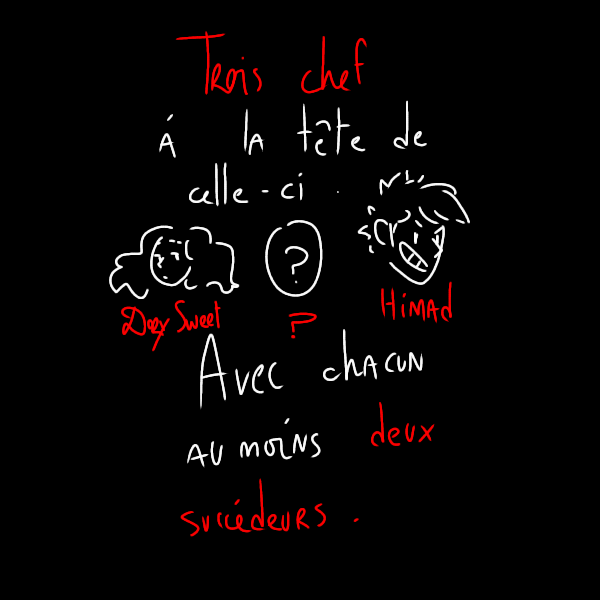 Trois chef
á la tête de
celle-ci.
Deex Sweet ? Himad
?
Avec chacun
au moins deux
succédeurs.